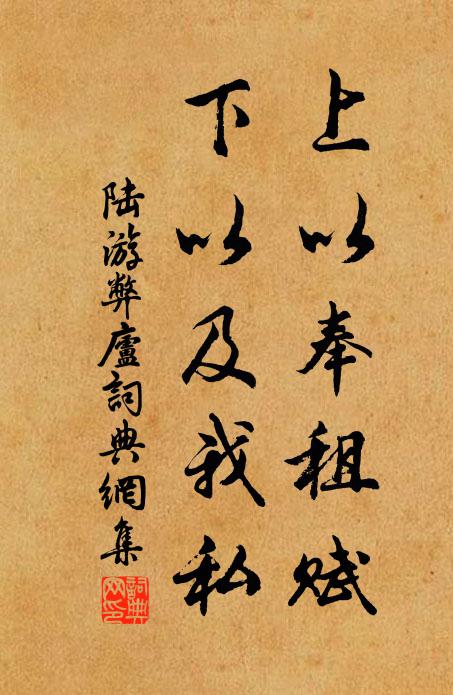 上以奉租赋
下以及我私
陆游弊廬詞典網集
詞典网印